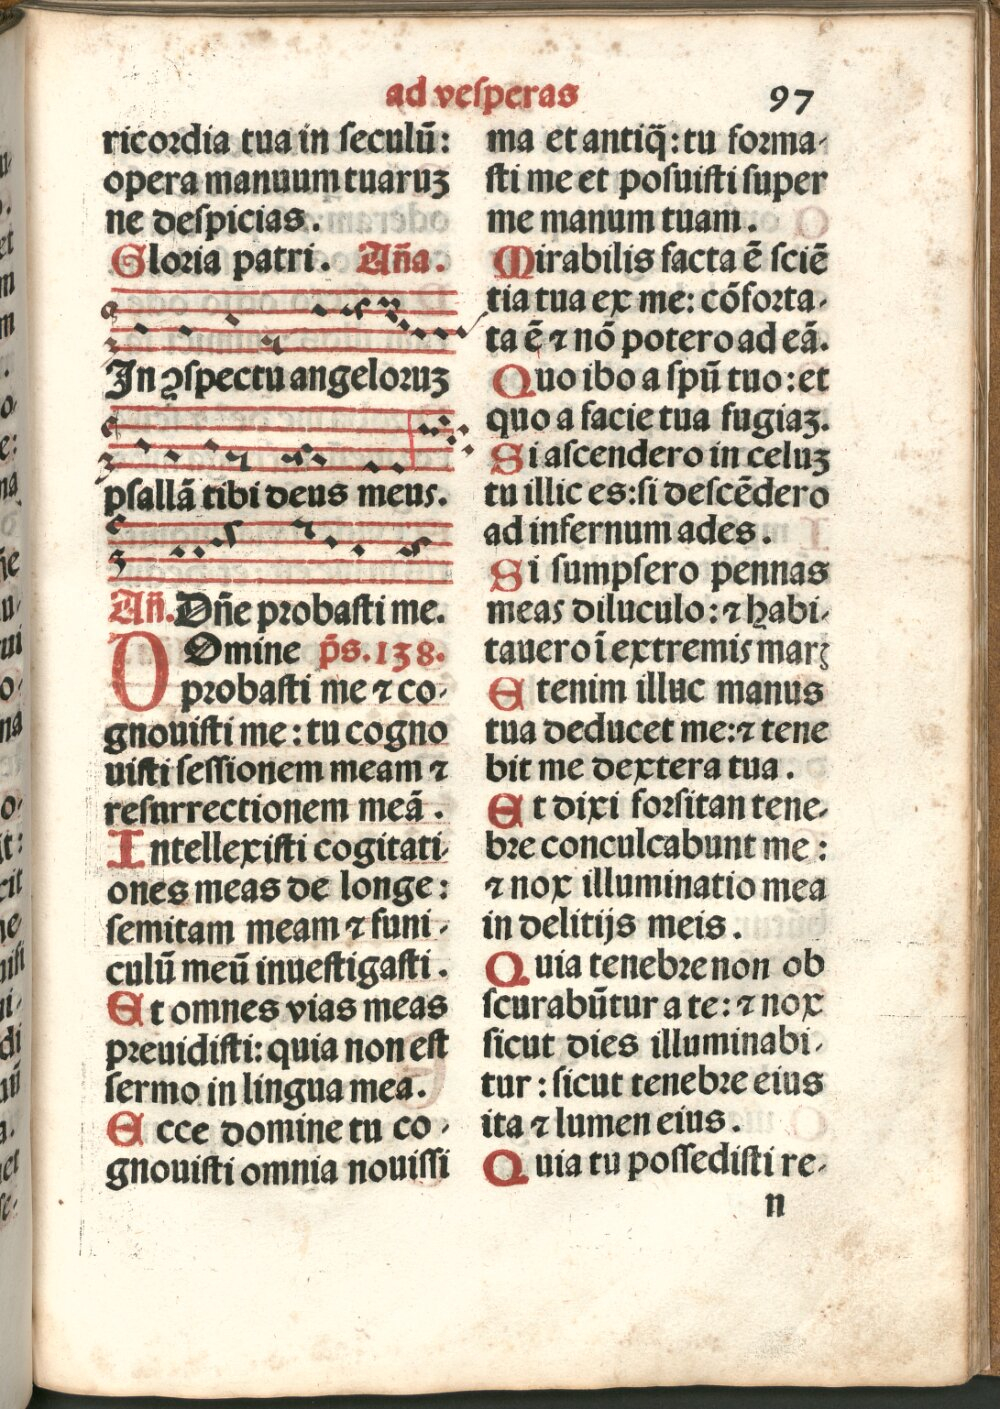 ad vesperas
97
ricordia tua in seculū:
opera manuum tuaruꝫ
ne despicias.
Gloria patri. Aña.
In ꝯspectu angeloruꝫ
psallā tibi deus meus.
Añ. Dñe probasti me.
DOmine p̄s.138.
probasti me ⁊ co-
gnouisti me: tu cogno
uisti sessionem meam ⁊
resurrectionem meā.
Intellexisti cogitati-
ones meas de longe:
semitam meam ⁊ funi-
culū meū inuestigasti.
Et omnes vias meas
preuidisti: quia non est
sermo in lingua mea.
Ecce domine tu co-
gnouisti omnia nouissi
ma et antiq̄: tu forma-
sti me et posuisti super
me manum tuam.
Mirabilis facta ē sciē
tia tua ex me: cōforta-
ta ē ⁊ nō potero ad eā.
Quo ibo a spū tuo: et
quo a facie tua fugiaꝫ.
Si ascendero in celuꝫ
tu illic es: si descēdero
ad infernum ades.
Si sumpsero pennas
meas diluculo: ⁊ habi-
tauero ī extremis marꝭ
Etenim illuc manus
tua deducet me: ⁊ tene
bit me dextera tua.
Et dixi forsitan tene-
bre conculcabunt me:
⁊ nox illuminatio mea
in delitijs meis.
Quia tenebre non ob
scurabūtur a te: ⁊ nox
sicut dies illuminabi-
tur: sicut tenebre eius
ita ⁊ lumen eius.
Quia tu possedisti re-
n